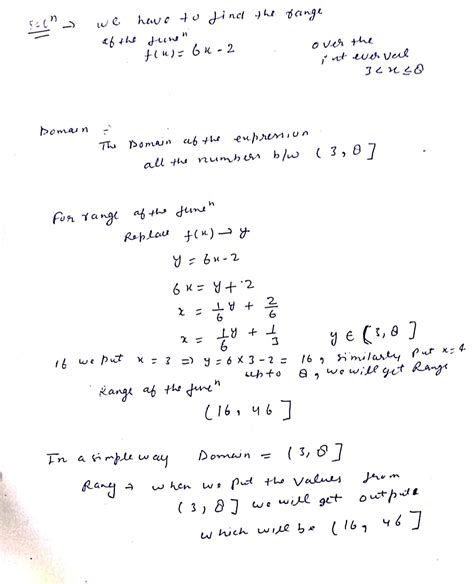 Solⁿ → we have to find the range
of the funcⁿ
f(x) = 6x - 2 over the
interverval
3 < x ≤ 8
Domain =
The Domain of the expression
all the numbers b/w (3, 8]
For range of the funcⁿ
Replace f(x) → y
y = 6x - 2
6x = y + 2
x = 1/6 y + 2/6
x = 1/6 y + 1/3 y ∈ (3, 8]
If we put x = 3 => y = 6 x 3 - 2 = 16, similarly put x = 4
upto 8, we will get Range
Range of the funcⁿ
(16, 46]
In a simple way Domain = (3, 8]
Rang → when we put the values from
(3, 8] we will get outputs
which will be (16, 46]